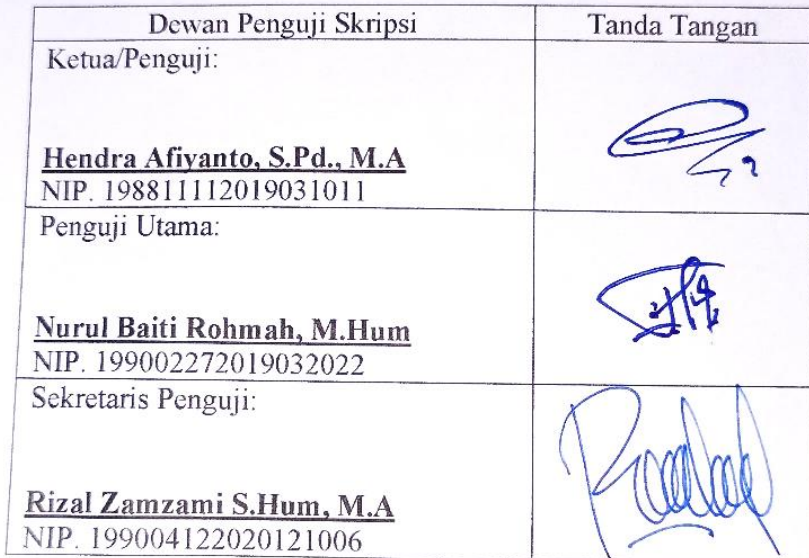 Dewan Penguji Skripsi
Tanda Tangan
Ketua/Penguji:
Hendra Afiyanto, S.Pd., M.A
NIP. 198811112019031011
Penguji Utama:
Nurul Baiti Rohmah, M.Hum
NIP. 199002272019032022
Sekretaris Penguji:
Rizal Zamzami S.Hum, M.A
NIP. 199004122020121006